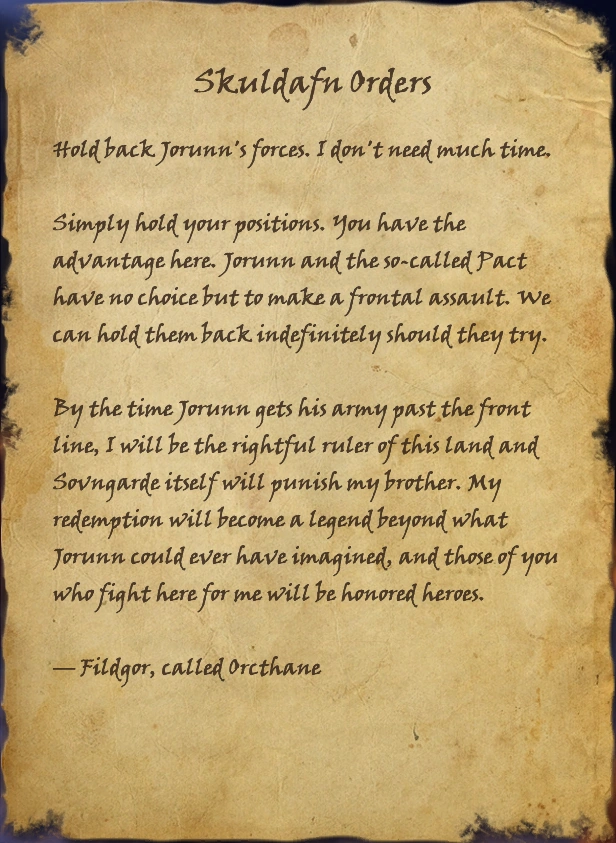 Skuldafn Orders
Hold back Jorunn's forces. I don't need much time.
Simply hold your positions. You have the
advantage here. Jorunn and the so-called Pact
have no choice but to make a frontal assault. We
can hold them back indefinitely should they try.
By the time Jorunn gets his army past the front
line, I will be the rightful ruler of this land and
Sovngarde itself will punish my brother. My
redemption will become a legend beyond what
Jorunn could ever have imagined, and those of you
who fight here for me will be honored heroes.
— Fildgor, called Orcthane